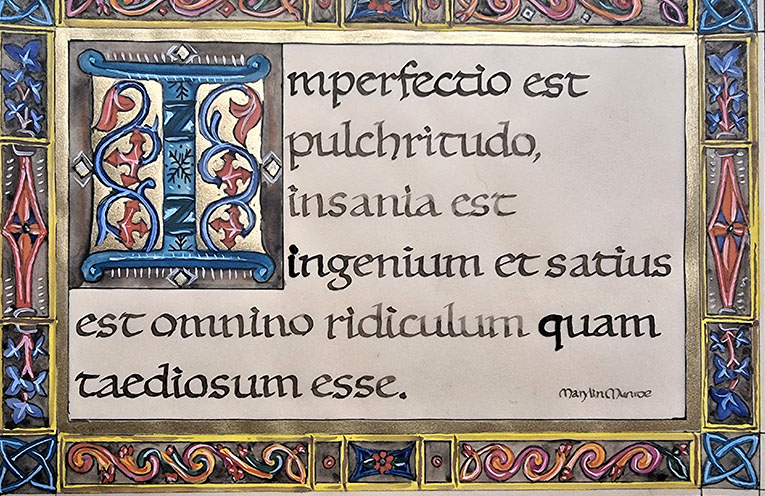 Imperfectio est
pulchritudo,
insania est
ingenium et satius
est omnino ridiculum quam
taediosum esse.
Marylin Munroe